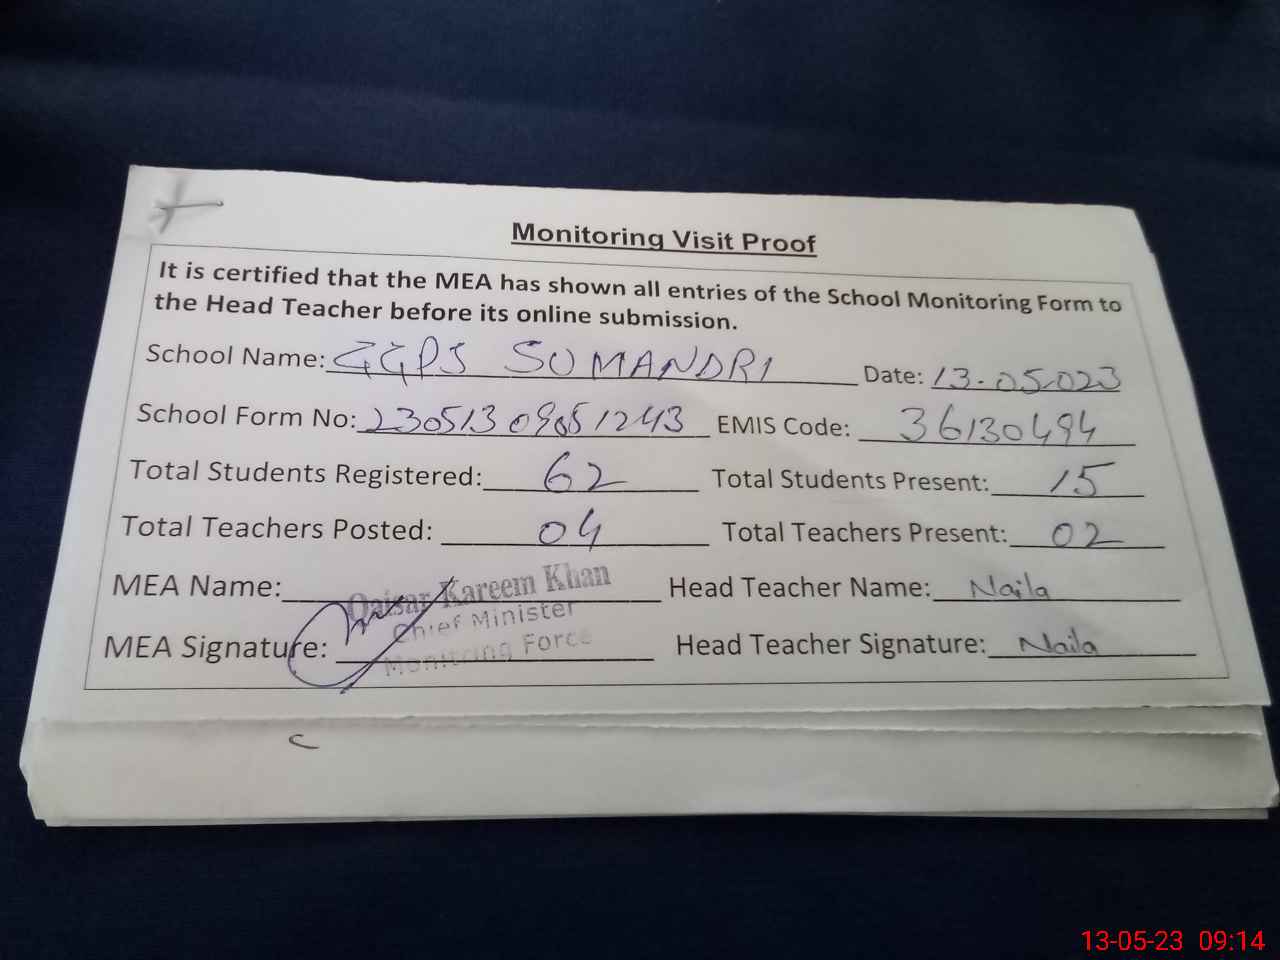 Monitoring Visit Proof
It is certified that the MEA has shown all entries of the School Monitoring Form to
the Head Teacher before its online submission.
School Name: GGPS SUMANDRI Date: 13-05-2023
School Form No: EMIS Code: 36130494
Total Students Registered: 62 Total Students Present: 15
Total Teachers Posted: 04 Total Teachers Present: 02
MEA Name: Qaisar Kareem Khan Head Teacher Name: Naila
Chief Minister
MEA Signature: Monitoring Force Head Teacher Signature: Naila
13-05-23 09:14